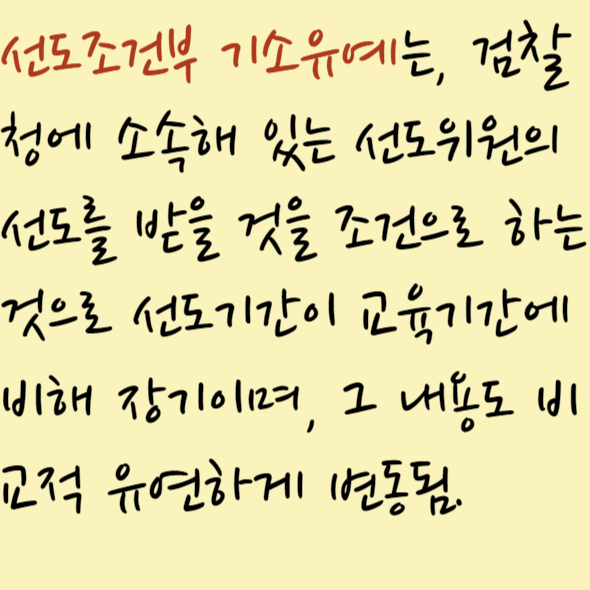 선도조건부 기소유예는, 검찰
청에 소속해 있는 선도위원의
선도를 받을 것을 조건으로 하는
것으로 선도기간이 교육기간에
비해 장기이며, 그 내용도 비
교적 유연하게 변동됨.